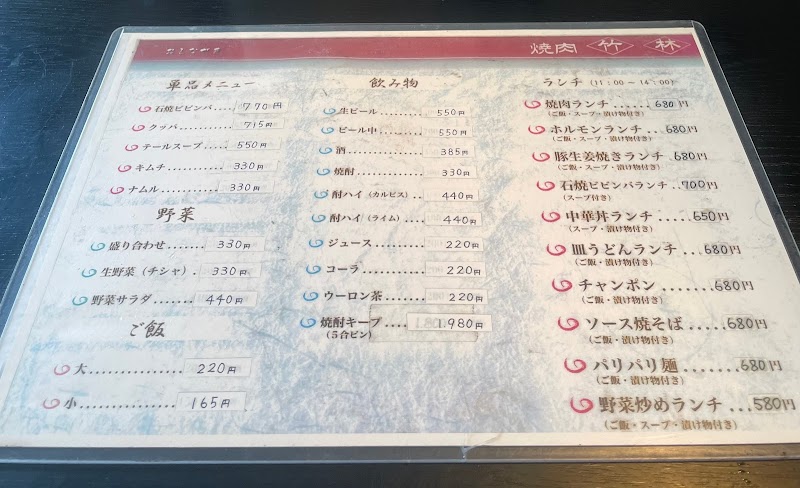 おしながき
焼肉 竹林
単品メニュー
石焼ビビンバ.... 770円
クッパ......... 715円
テールスープ...... 550円
キムチ......... 330円
ナムル......... 330円
野菜
盛り合わせ....... 330円
生野菜（チシャ）. 330円
野菜サラダ....... 440円
ご飯
大............... 220円
小............... 165円
飲み物
生ビール......... 550円
ビール中......... 550円
酒............... 385円
焼酎............. 330円
酎ハイ（カルピス）.. 440円
酎ハイ（ライム）... 440円
ジュース......... 220円
コーラ........... 220円
ウーロン茶....... 220円
焼酎キープ.... 1.980円
（５合ビン）
ランチ（11：00〜14：00）
焼肉ランチ...... 680円
（ご飯・スープ・漬け物付き）
ホルモンランチ... 680円
（ご飯・スープ・漬け物付き）
豚生姜焼きランチ 680円
（ご飯・スープ・漬け物付き）
石焼ビビンバランチ..700円
（スープ付き）
中華丼ランチ.... 650円
（スープ・漬け物付き）
皿うどんランチ... 680円
（ご飯・漬け物付き）
チャンポン....... 680円
（ご飯・漬け物付き）
ソース焼そば..... 680円
（ご飯・漬け物付き）
パリパリ麺....... 680円
（ご飯・漬け物付き）
野菜炒めランチ... 580円
（ご飯・スープ・漬け物付き）